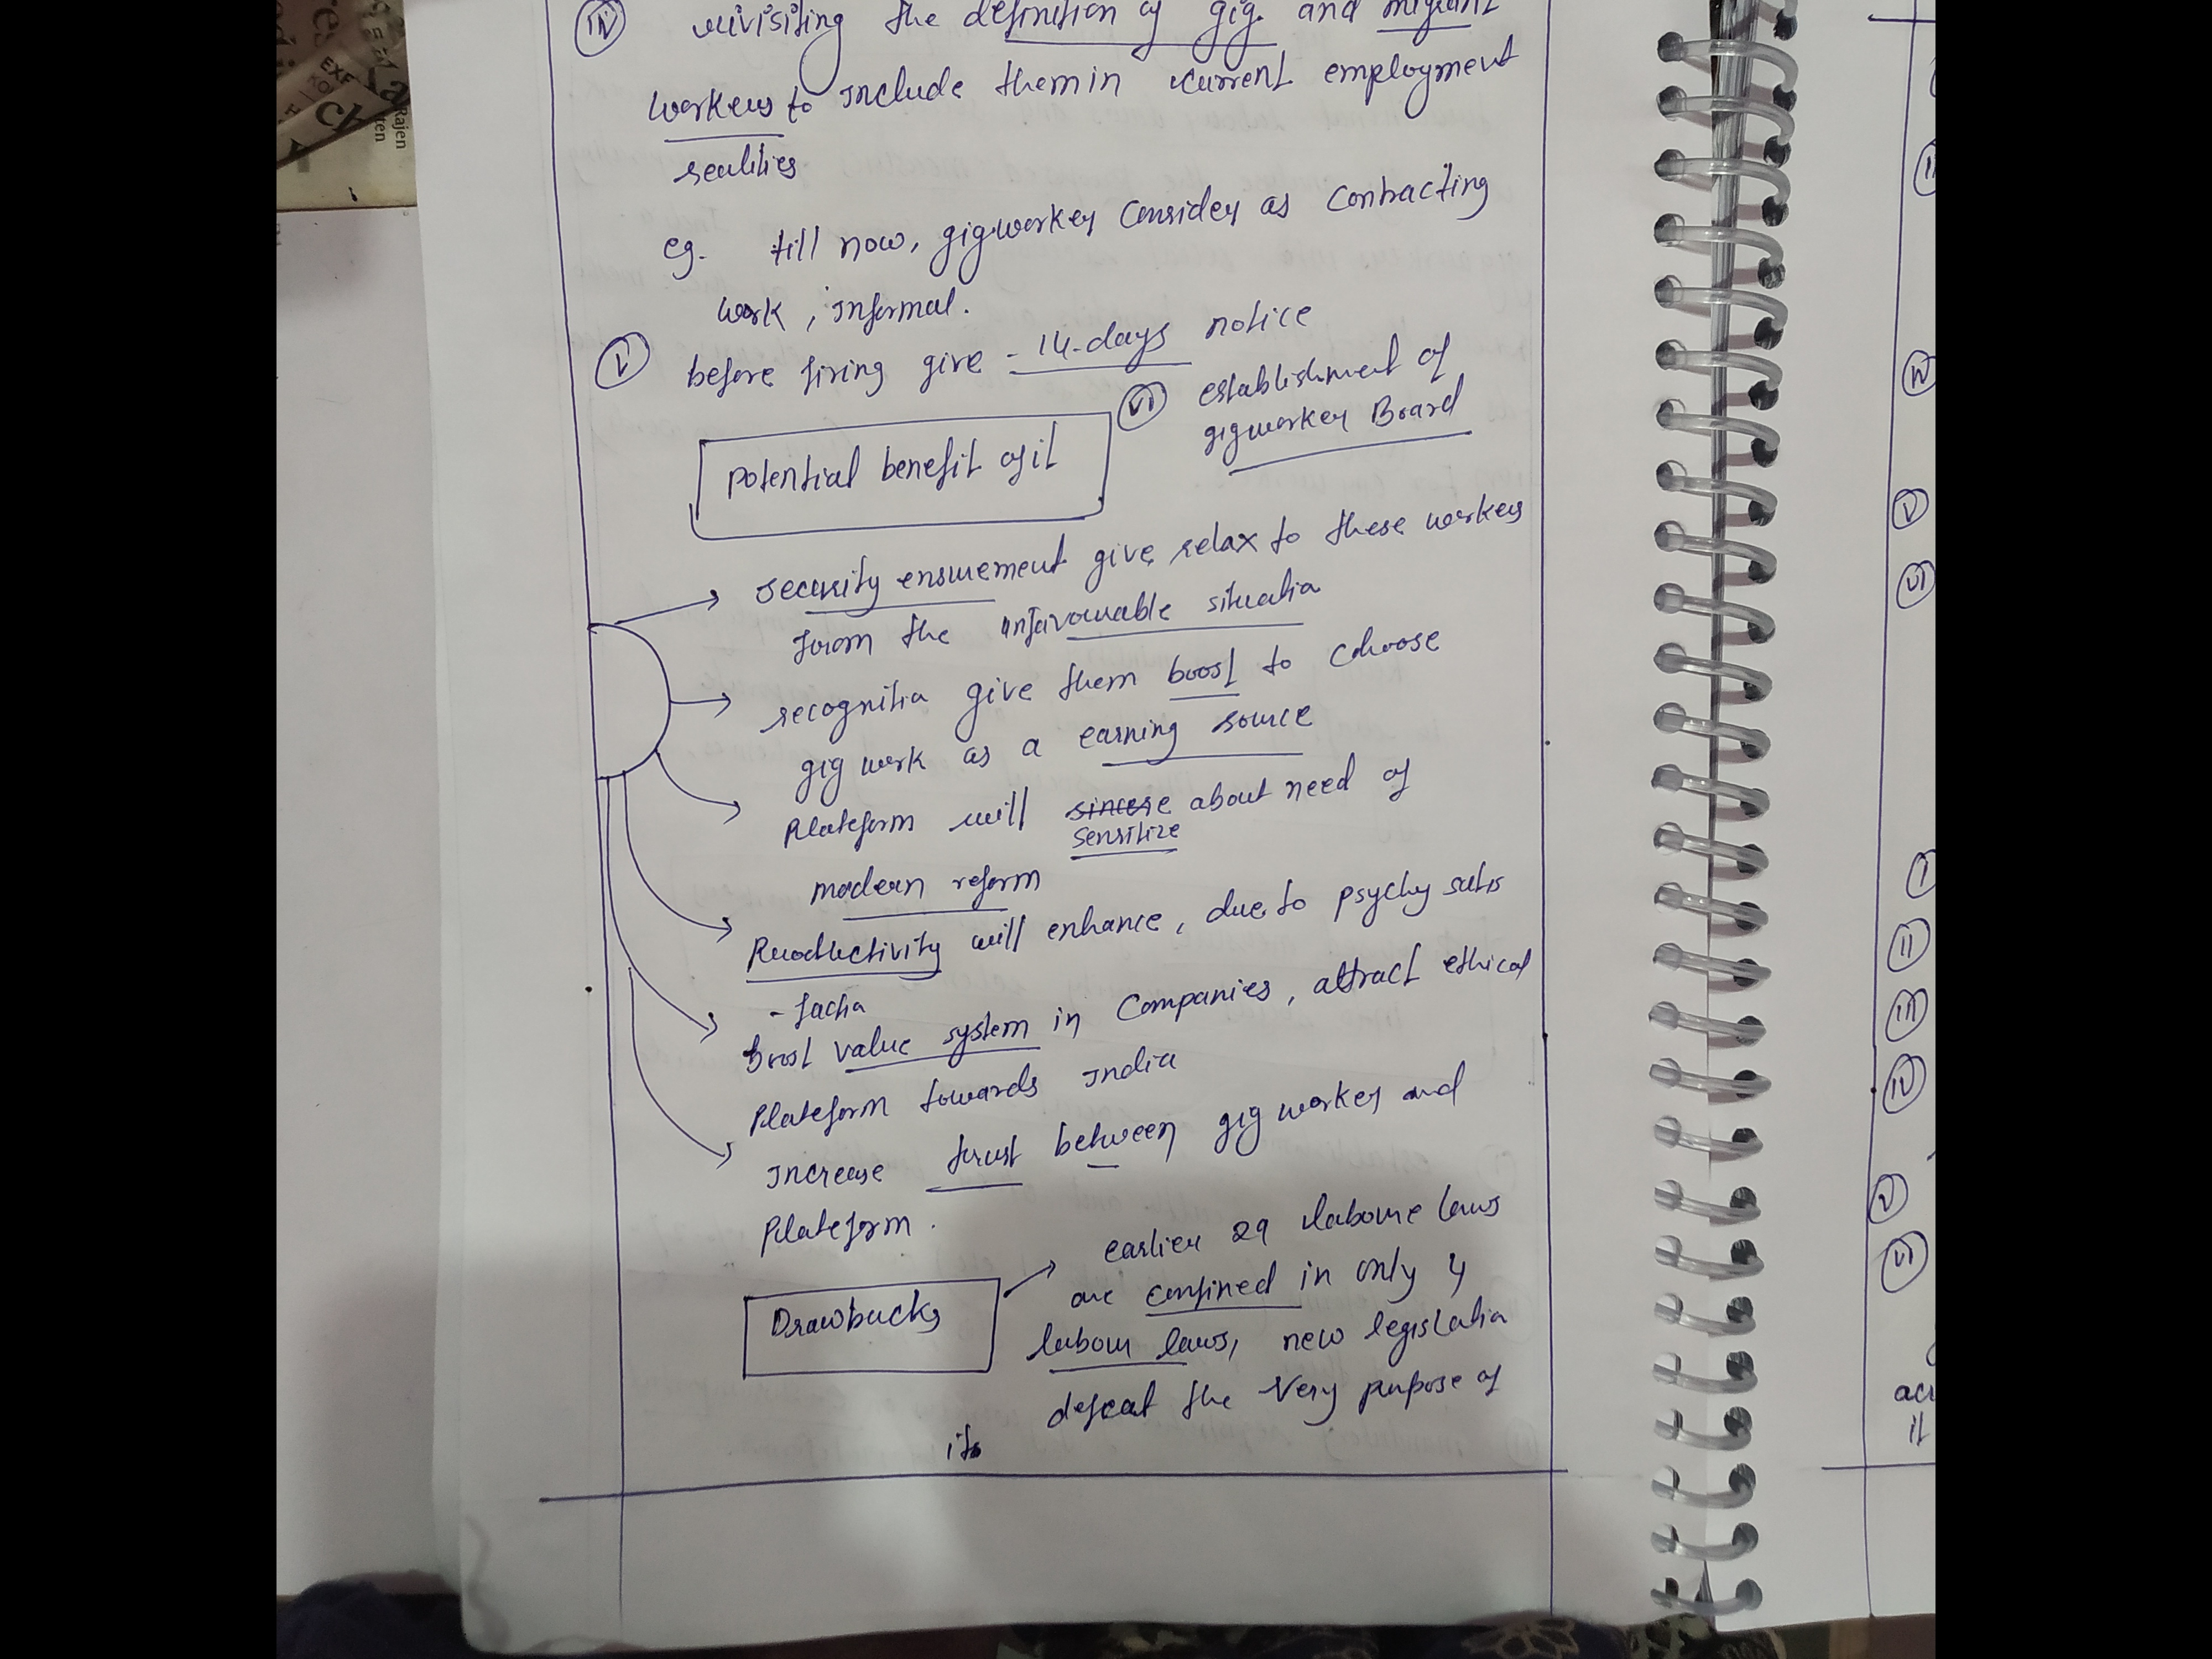 iv revisiting the definition of gig and migrant
workers to include them in current employment
realities
eg. till now, gigworker consider as contracting
work, informal.
v before firing give - 14-days notice
vi establishment of
gigworker Board
Potential benefit of it
Security ensurement give relax to these workers
from the unfavourable situatia
recognitia give them boost to choose
gig work as a earning source
Plateform will sincere about need of
sensitize
modern reform
Productivity will enhance, due to psychy satis
- factia
boost value system in Companies, attract ethical
Plateform towards India
Increase trust between gig worker and
Plateform.
Drawbacks
earlier 29 laboure laws
are confined in only 4
labour laws, new legislatia
defeat the very purpose of
its
EXE
Rajen
ten
ii
iv
v
vi
i
ii
iii
iv
v
vi
it